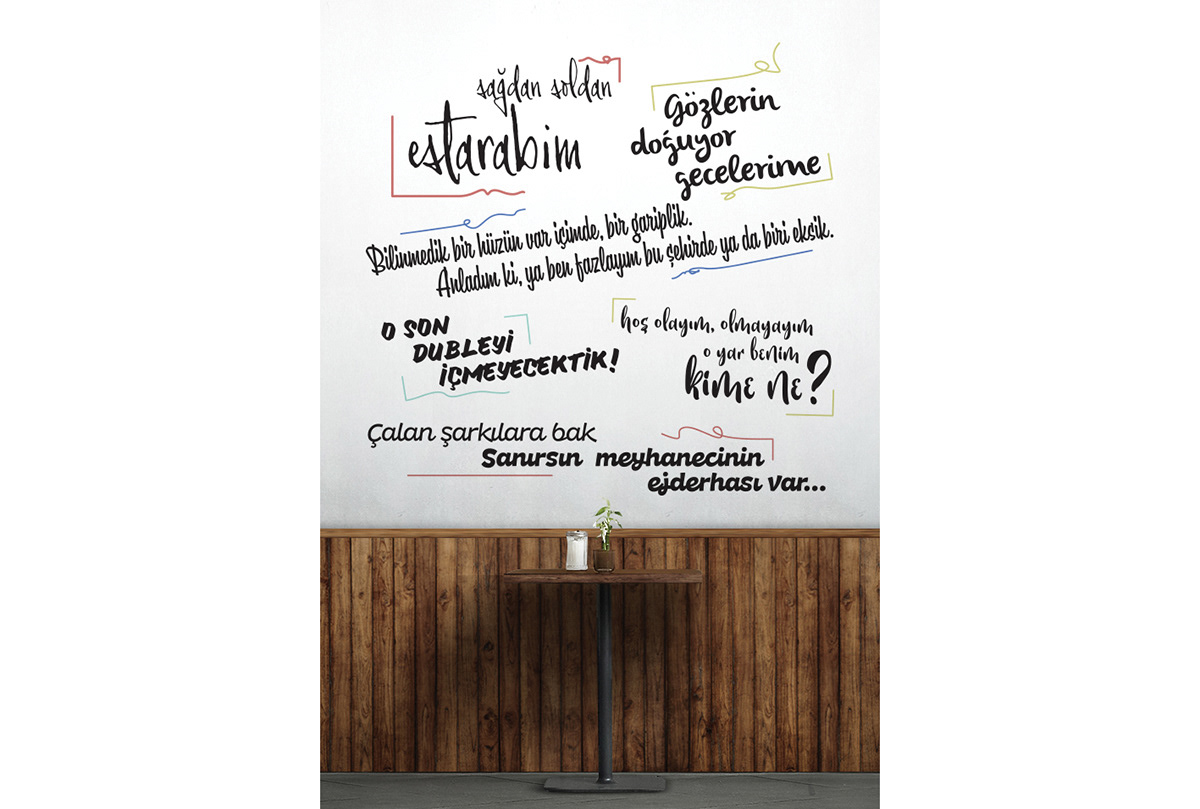 sağdan soldan
estarabim
Gözlerin
doğuyor
gecelerime
Bilinmedik bir hüzün var içimde, bir gariplik.
Anladım ki, ya ben fazlayım bu şehirde ya da biri eksik.
O SON
DUBLEYİ
İÇMEYECEKTİK!
hoş olayım, olmayayım
o yar benim
kime ne?
Çalan şarkılara bak
Sanırsın meyhanecinin
ejderhası var...